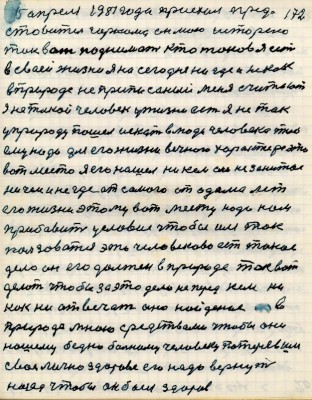 5 апреля 1981 года приехал пред 172
ставител чиркома си мою историю
так вот поднимат кто таков я ест
в своей жизни я на сегодня ни где и ни как
в природе не приписаный меня считают
я не такой человек у жизни ест я не так
у природу пошел искат в людях человека тако
ему нада для его жизни вечного характера это
вот место я его нашел ни кем оно не занятое
ни чем и не где от самого от адама лет
его жизни этому вот месту надо нам
прибавит условие чтобы им так
ползоватся эта человекова ест такое
дело он его должен в природе так вот
делат чтобы за это дело не перед кем ни
как ни отвечат оно найденое в
природе много средствами чтобы они
нашему бедно болному человеку потерявшим
свая лично здоровье его надо вернут
назад чтобы он был здоров